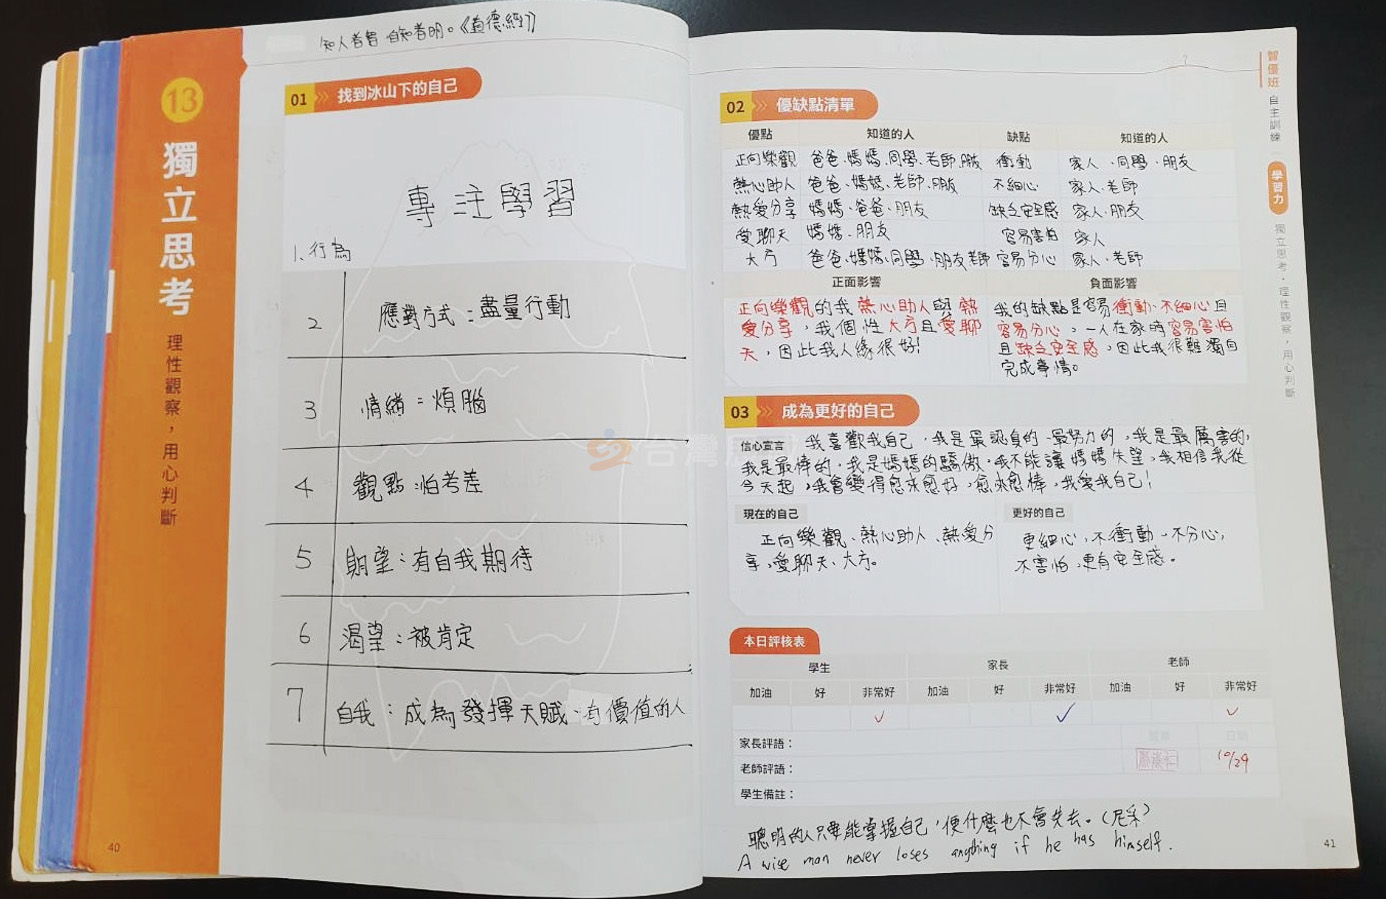 知人者智 自知者明。《道德經》
13
獨立思考
理性觀察，用心判斷
01 找到冰山下的自己
專注學習
1. 行為
2 應對方式：盡量行動
3 情緒：煩腦
4 觀點：怕考差
5 期望：有自我期待
6 渴望：被肯定
7 自我：成為發揮天賦、有價值的人
40
02 優缺點清單
優點 知道的人 缺點 知道的人
正向樂觀 爸爸、媽媽、同學、老師、朋友 衝動 家人、同學、朋友
熱心助人 爸爸、媽媽、老師、朋友 不細心 家人、老師
熱愛分享 媽媽、爸爸、朋友 缺乏安全感 家人、朋友
愛聊天 媽媽、朋友 容易害怕 家人
大方 爸爸、媽媽、同學、朋友、老師 容易分心 家人、老師
正面影響 負面影響
正向樂觀的我熱心助人與熱
愛分享，我個性大方且愛聊
天，因此我人緣很好！
我的缺點是容易衝動、不細心且
容易分心，一人在家時容易害怕
且缺乏安全感，因此我很難獨自
完成事情。
03 成為更好的自己
信心宣言 我喜歡我自己，我是最認真的、最努力的，我是最厲害的，
我是最棒的，我是媽媽的驕傲，我不能讓媽媽失望，我相信我從
今天起，我會變得愈來愈好，愈來愈棒，我愛我自己！
現在的自己
正向樂觀、熱心助人、熱愛分
享，愛聊天、大方。
更好的自己
更細心，不衝動、不分心，
不害怕，更有安全感。
本日評核表
學生 家長 老師
加油 好 非常好 加油 好 非常好 加油 好 非常好
家長評語：
老師評語：
10/29
學生備註：
聰明的人只要能掌握自己，便什麼也不會失去。（尼采）
A wise man never loses anything if he has himself.
41
資優班 自主訓練
學習力
獨立思考，理性觀察，用心判斷